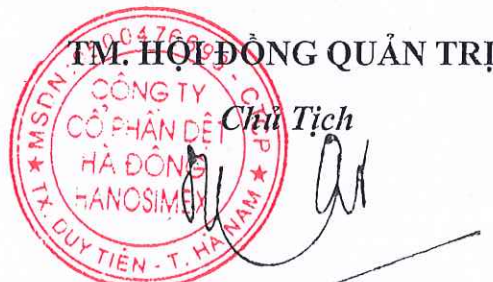 TM. HỘI ĐỒNG QUẢN TRỊ
Chủ Tịch
CÔNG TY
CỔ PHẦN DỆT
HÀ ĐÔNG
HANOSIMEX
TX. DUY TIÊN - T. HÀ NAM